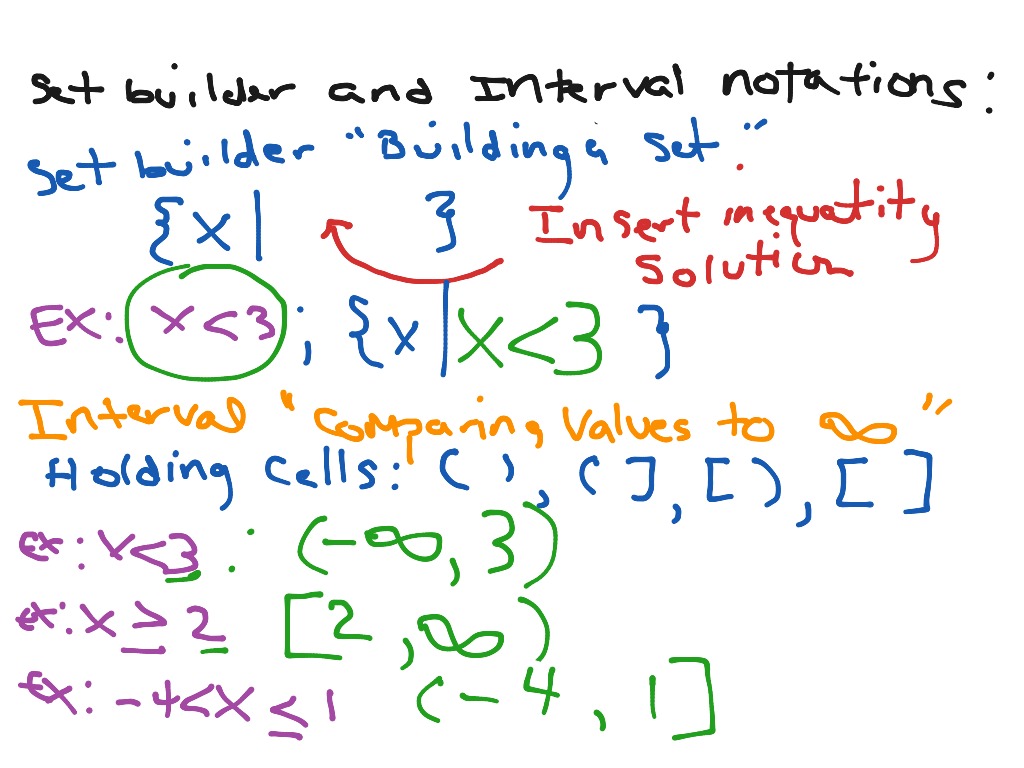 Set builder and Interval notations:
Set builder "Building a set"
{x| } Insert inequality
solution
Ex: x<3 ; {x|x<3 }
Interval "Comparing Values to ∞"
Holding Cells: ( ), ( ], [ ), [ ]
ex: x<3 : (-∞, 3)
ex: x ≥ 2 [2, ∞)
Ex: -4<x≤1 (-4, 1]